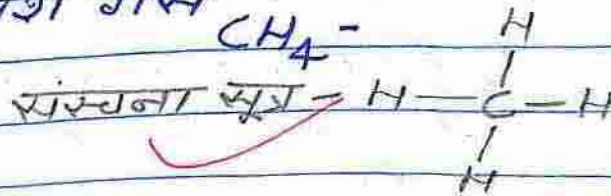 CH₄ -
H
संरचना सूत्र - H — C — H
H